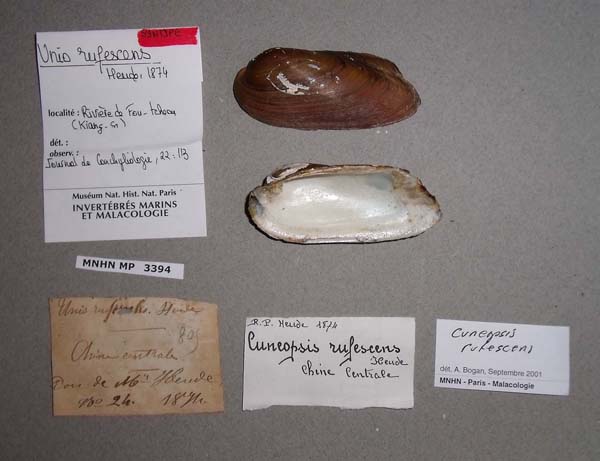 SYNTYPE
Unio rufescens
Heude, 1874
localité : Rivière de Fou-tcheou
(Kiang-si)
dét. :
observ. :
Journal de Conchyliologie, 22 : 113
Muséum Nat. Hist. Nat. Paris
INVERTÉBRÉS MARINS
ET MALACOLOGIE
MNHN MP 3394
Unio rufescens. Heude
Chine centrale
Don de Mr Heude
No 24. 1874.
R.P. Heude 1874
Cuneopsis rufescens
Heude
Chine Centrale
Cuneopsis
rufescens
dét. A. Bogan, Septembre 2001
MNHN - Paris - Malacologie